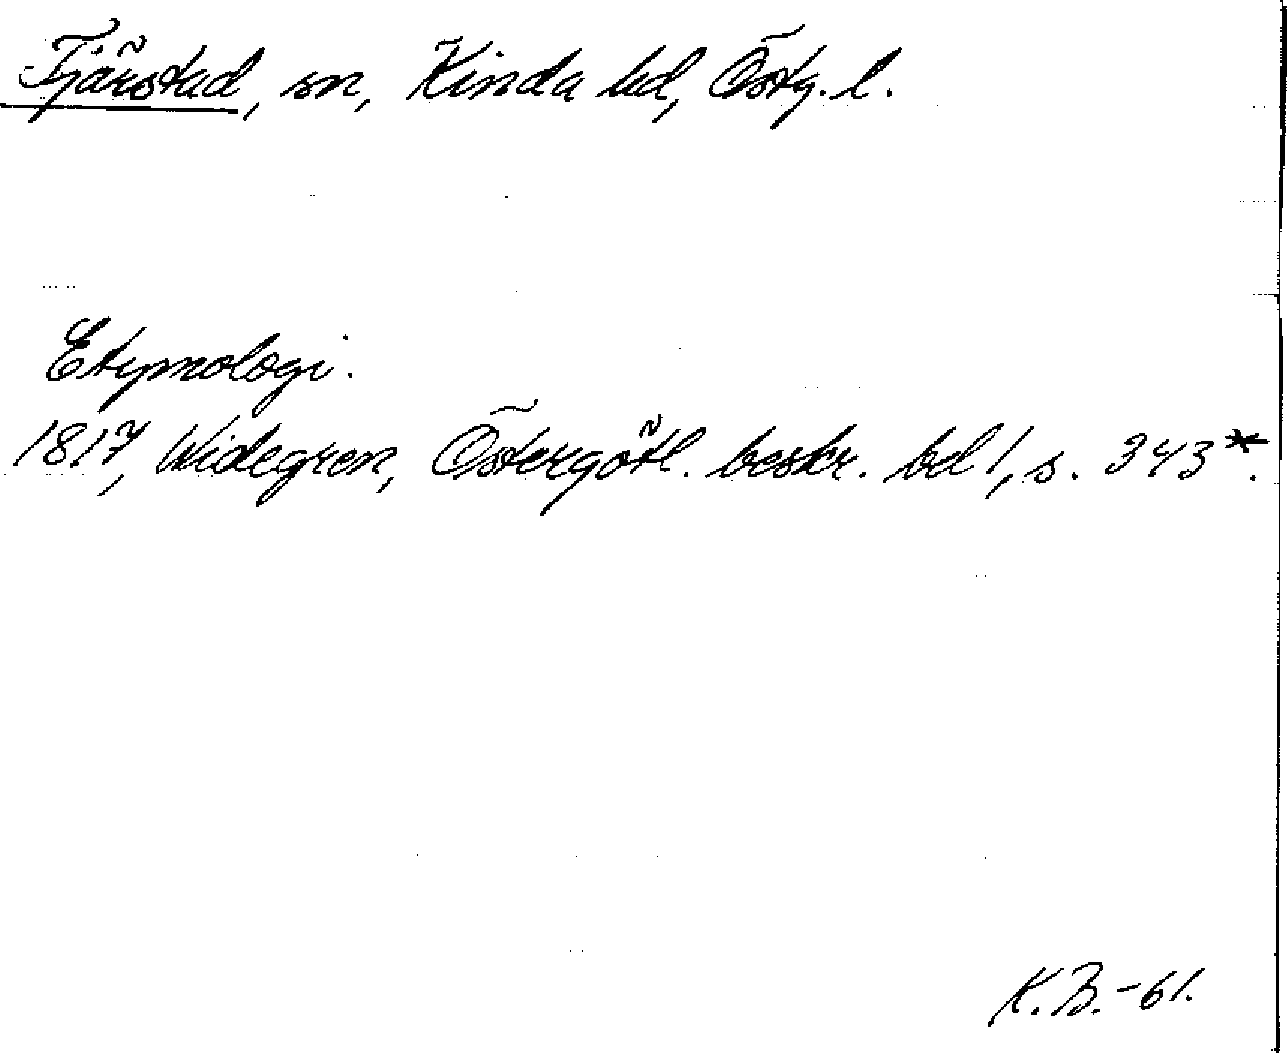 Tjärstad, sn, Kinda hd, Östg. l.
Etymologi.
1817, Widegren, Östergötl. beskr. bd 1, s. 343*.
K.B.-61.